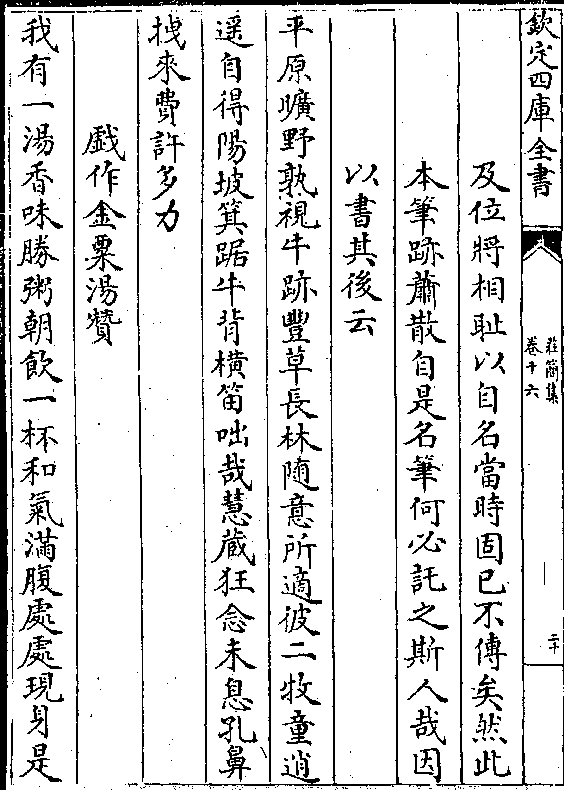 欽定四庫全書
莊簡集
卷十六
二十
及位將相耻以自名當時固已不傳矣然此
本筆跡蕭散自是名筆何必託之斯人哉因
以書其後云
平原曠野熟視牛跡豐草長林随意所適彼二牧童逍
遥自得陽坡箕踞牛背橫笛咄哉慧蔵狂念未息孔鼻
拽來費許多力
戯作金粟湯贊
我有一湯香味勝粥朝飲一杯和氣滿腹處處現身是